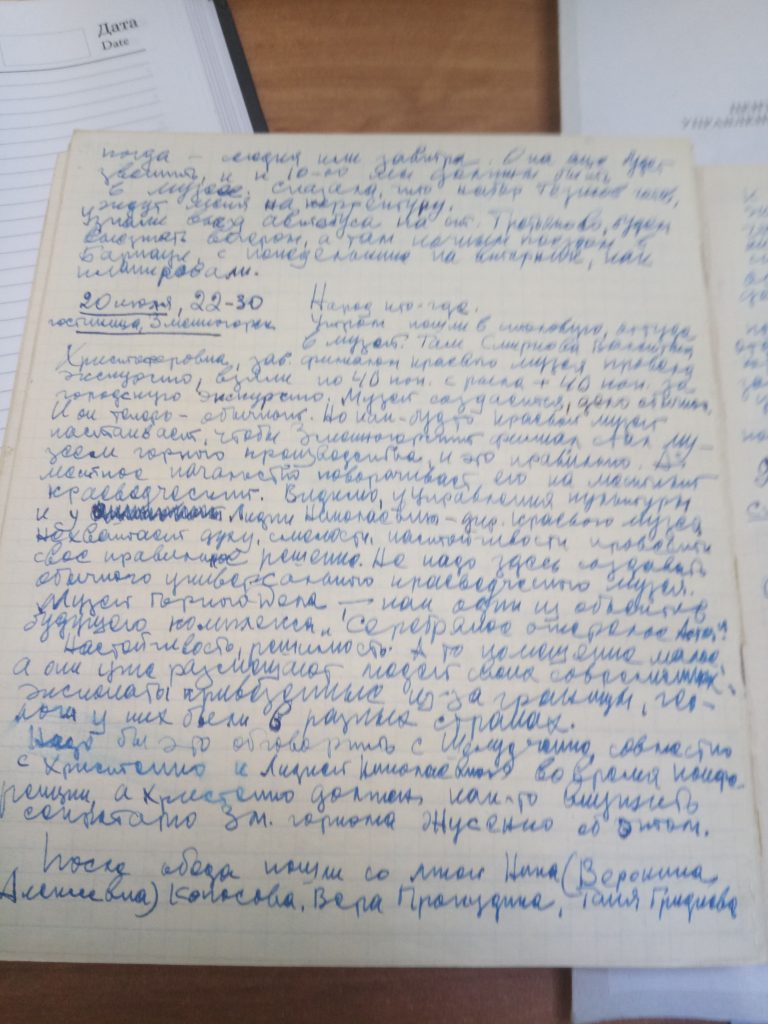 Дата
Date
когда – сегодня или завтра. Она еще будет
звонить, и к 10-00 мы должны быть
в музее. Сказала, что набор тезисов готов,
ждут меня на корректуру.
Узнали выезд автобуса на ст. Третьяково, будем
выезжать вечером, а там ночным поездом в
Барнаул, с понедельника на вторник, как
планировали.
20 июля, 22-30
гостиница, Змеиногорск
Народ кто-где.
Утром пошли в столовую, оттуда
в музей. Там Смирнова Валентина
Христофоровна, зав. филиалом краевого музея провела
экскурсию, взяли по 40 коп. с рыла + 40 коп. за
городскую экскурсию. Музей создается, дело обычное.
И он тоже – обычный. Но как-будто краевой музей
настаивает, чтобы Змеиногорский филиал стал му-
зеем горного производства, и это правильно. А
местное начальство поворачивает его на
краеведческий. Видимо, у управления культуры
и у Лидии Николаевны – дир. краевого музея
не хватает духу, смелости, настойчивости провести
свое правильное решение. Не надо здесь создавать
обычного универсального краеведческого музея.
Музей горного дела – как один из объектов
будущего комплекса "Серебряное ожерелье Алтая".
Настойчивость, решимость. А то помещение мало,
а они уже размещают людей своих современных,
экспонаты, привезенные из-за границы, гео-
логи у них были в разных странах.
Надо бы это обговорить с, совместно
с Христенко и Лидией Николаевной во время конфе-
ренции, а Христенко должен как-то внушить
секретарю Зм. горкома Жусенко об этом.
После обеда пошли со мной Нина (Вероника
Алексеевна) Колосова, Вера, Таня Гриднева